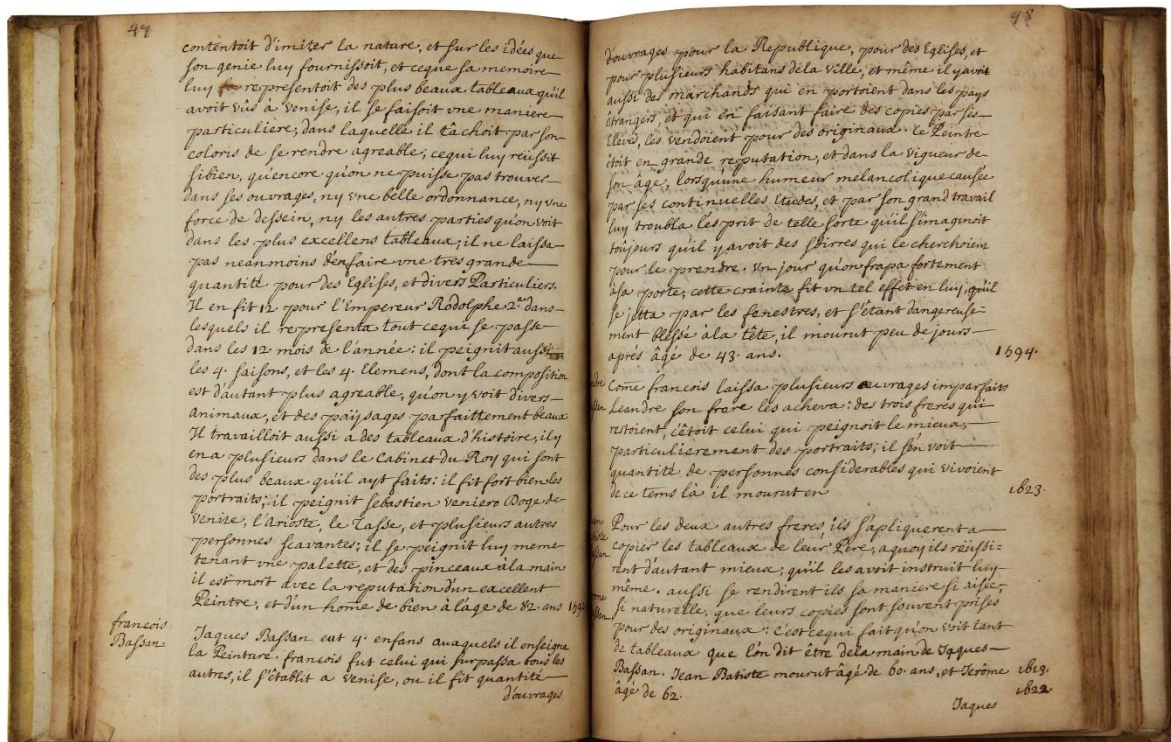 47
contentoit d'imiter la nature, et sur les idées que
son genie luy fournissoit, et ceque sa memoire
luy representoit des plus beaux tableaux qu'il
avoit vûs a venise, il se faisoit vne maniere
particuliere, dans laquelle il tâchoit par son
coloris de se rendre agreable; cequi luy reussit
sibien, qu'encore qu'on ne puisse pas trouver
dans ses ouvrages, ny vne belle ordonnance, ny vne
force de dessein, ny les autres parties qu'on voit
dans les plus excellens tableaux; il ne laissa
pas neanmoins d'en faire vne tres grande
quantité pour des Eglises, et divers Particuliers.
Il en fit 12 pour l'Empereur Rodolphe 2e dans
lesquels il representa tout cequi se passe
dans les 12 mois de l'année: il peignit aussi
les 4. saisons, et les 4. Elemens, dont la composition
est d'autant plus agreable, qu'on y voit divers
animaux, et des païsages parfaittement beaux
Il travailloit aussi a des tableaux d'histoire; il y
en a plusieurs dans le Cabinet du Roy qui sont
des plus beaux qu'il ayt faits: il fit fort bien les
portraits; il peignit sebastien veniero Doge de
venise, l'Arioste, le Tasse, et plusieurs autres
personnes scavantes; il se peignit luy meme
tenant vne palette, et des pinceaux à la main
il est mort avec la reputation d'un excellent
Peintre, et d'un home de bien à l'âge de 82. ans 1592
francois
Bassan
Jaques Bassan eut 4. enfans auxquels il enseigna
la Peinture. francois fut celui qui surpassa tous les
autres, il s'établit a venise, ou il fit quantité
d'ouvrages
48
d'ouvrages pour la Republique, pour des Eglises, et
pour plusieurs habitans dela ville, et même il y avoit
aussi des marchands qui en portoient dans les pays
étrangers, et qui en faisant faire des copies par ses
Elevés, les vendoient pour des originaux. le Peintre
étoit en grande reputation, et dans la vigueur de
son âge, lorsqu'une humeur melancolique causée
par ses continuelles Etudes, et par son grand travail
luy troubla l'esprit de telle sorte qu'il s'imaginoit
toûjours qu'il y avoit des sbirres qui le cherchoient
pour le prendre. vn jour qu'on frapa fortement
à sa porte, cette crainte fit vn tel effet en luy, qu'il
se jetta par les fenestres, et s'étant dangereuse-
ment blessé à la tête, il mourut peu de jours
aprés âgé de 43. ans. 1594.
Come francois laissa plusieurs ouvrages imparfaits
Leandre son frere les acheva: des trois freres qui
restoient, c'étoit celui qui peignoit le mieux,
particulierement des portraits; il s'en voit
quantité de personnes considerables qui vivoient
de ce tems là il mourut en 1623.
Pour les deux autres freres ils s'apliquerent a
copier les tableaux de leur Pere, aquoy ils réussi=
rent d'autant mieux, qu'il les avoit instruit luy
même. aussi se rendirent ils sa maniere si aisée,
si naturelle, que leurs copies sont souvent prises
pour des originaux: C'est cequi fait qu'on voit tant
de tableaux que l'on dit être dela main de Jaques
Bassan. Jean Batiste mourut âgé de 60. ans, et Jerôme 1613.
âgé de 62. 1622.
Jaques